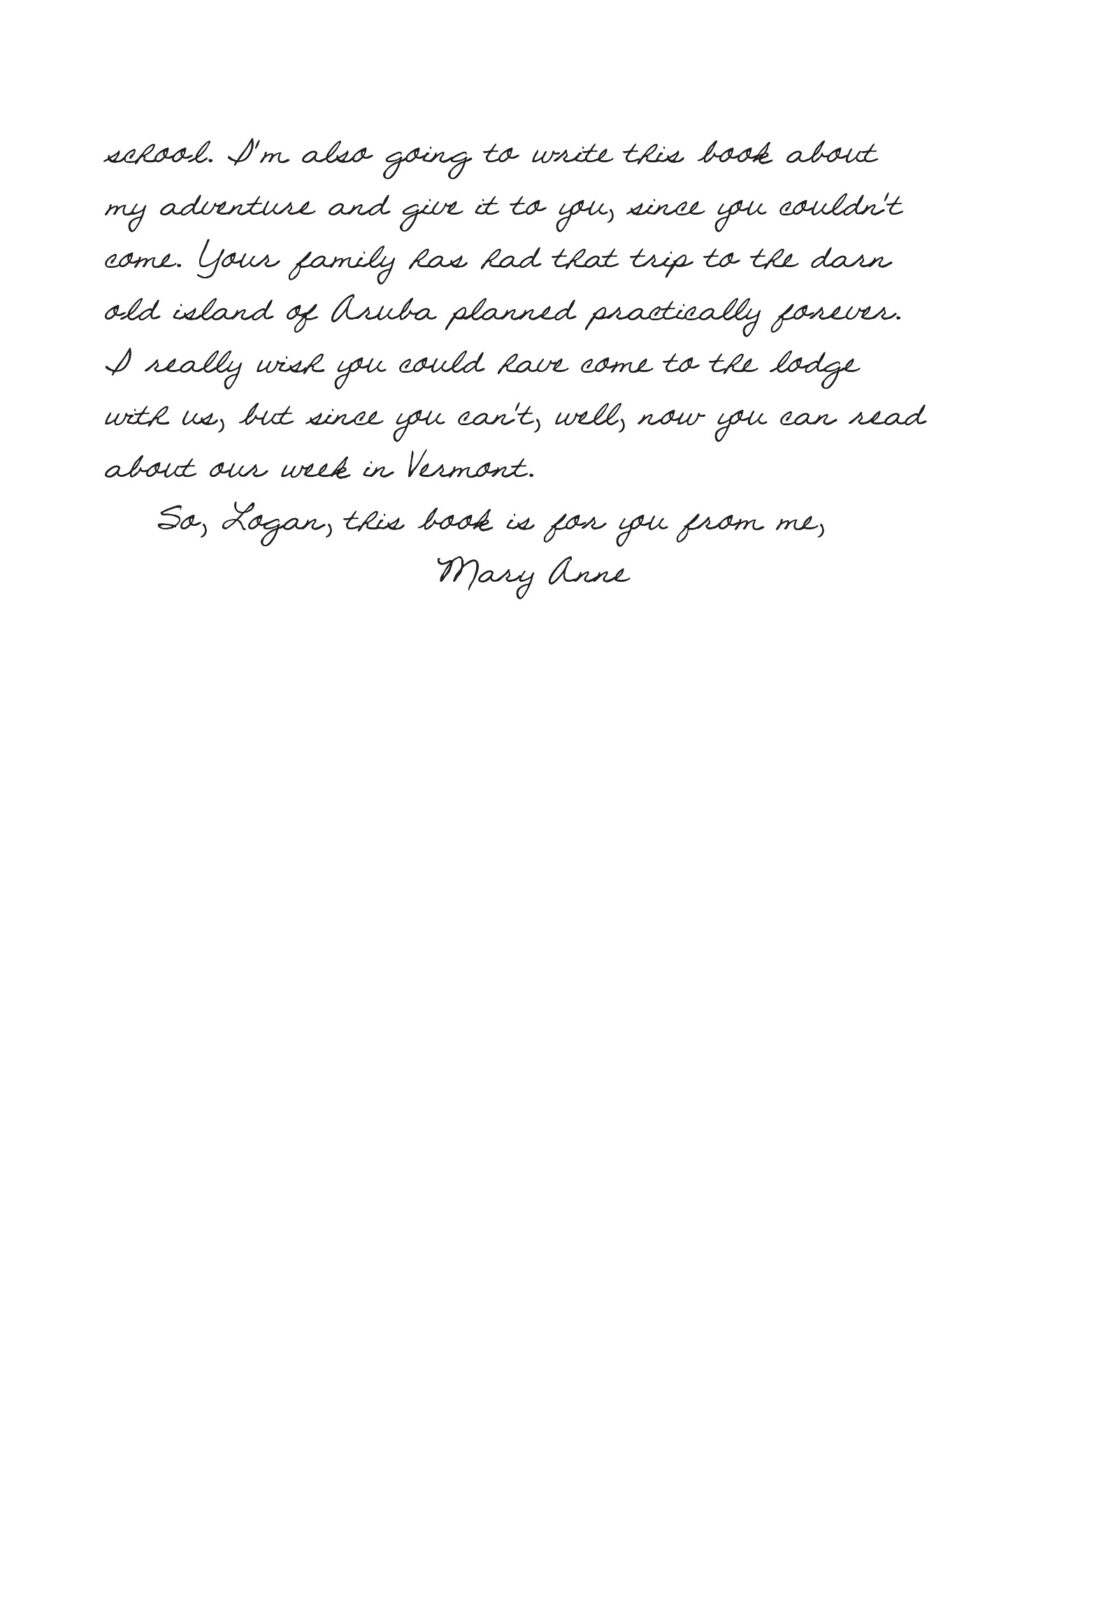 school. I'm also going to write this book about
my adventure and give it to you, since you couldn't
come. Your family has had that trip to the darn
old island of Aruba planned practically forever.
I really wish you could have come to the lodge
with us, but since you can't, well, now you can read
about our week in Vermont.
So, Logan, this book is for you from me,
Mary Anne